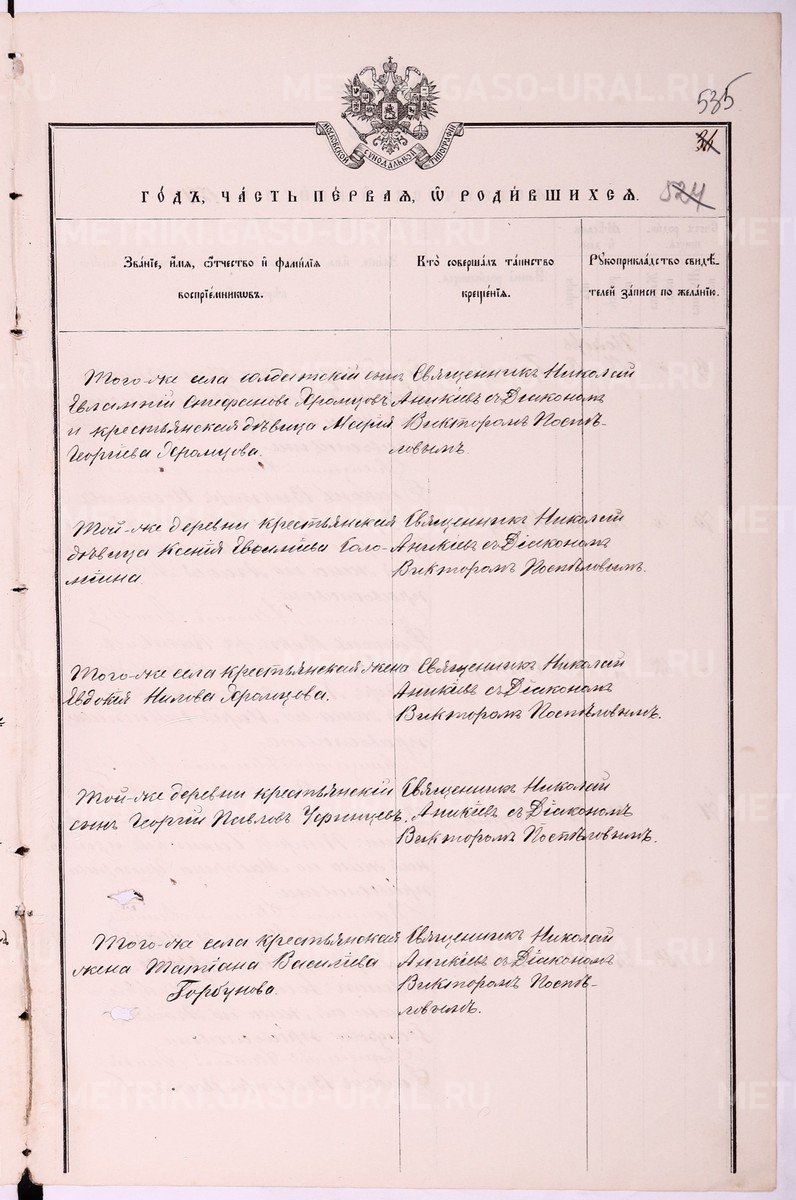 535
31
524
МОСКОВСКОЙ СѴНОДАЛЬНОЙ ТИПОГРАФІИ
ГО́ДЪ, ЧА́СТЬ ПЕ́РВАЯ, Ѿ РОДИ́ВШИХСЯ.
Зва́ніе, и҆́мя, ѻ҆́тчество и҆ фами́лія
воспріе́мникѡвъ.
Кто̀ соверша́лъ та́инство
креще́нія.
Рꙋкоприкла́дство свидѣ́-
телей за́писи по жела́нію.
Того-же села солдатскій сынъ
Евлампій Стефановъ Храмцовъ
и крестьянская дѣвица Марія
Георгіева Храмцова.
Священникъ Николай
Аникіевъ съ Діакономъ
Викторомъ Поспѣ-
ловымъ.
Той-же деревни крестьянская
дѣвица Ксенія
Священникъ Николай
Аникіевъ съ Діакономъ
Викторомъ Поспѣловымъ.
Того-же села крестьянская жена
Евдокія Нилова Храмцова.
Священникъ Николай
Аникіевъ съ Діакономъ
Викторомъ Поспѣловымъ.
Той-же деревни крестьянскій
сынъ Георгій Павловъ
Священникъ Николай
Аникіевъ съ Діакономъ
Викторомъ Поспѣловымъ.
Того-же села крестьянская
жена Татіана Василіева
Горбунова.
Священникъ Николай
Аникіевъ съ Діакономъ
Викторомъ Поспѣ-
ловымъ.
METRIKI.GASO-URAL.RU